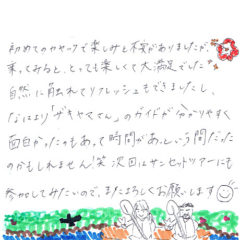 初めてのカヤックで楽しみと不安がありましたが、
乗ってみると、とっても楽しくて大満足でした
自然に触れてリフレッシュもできましたし、
なにより「ザキヤマさん」のガイドが分かりやすく
面白かったのもあって時間があっという間だった
のかもしれません!笑 次回はサンセットツアーにも
参加してみたいので、またよろしくお願いします